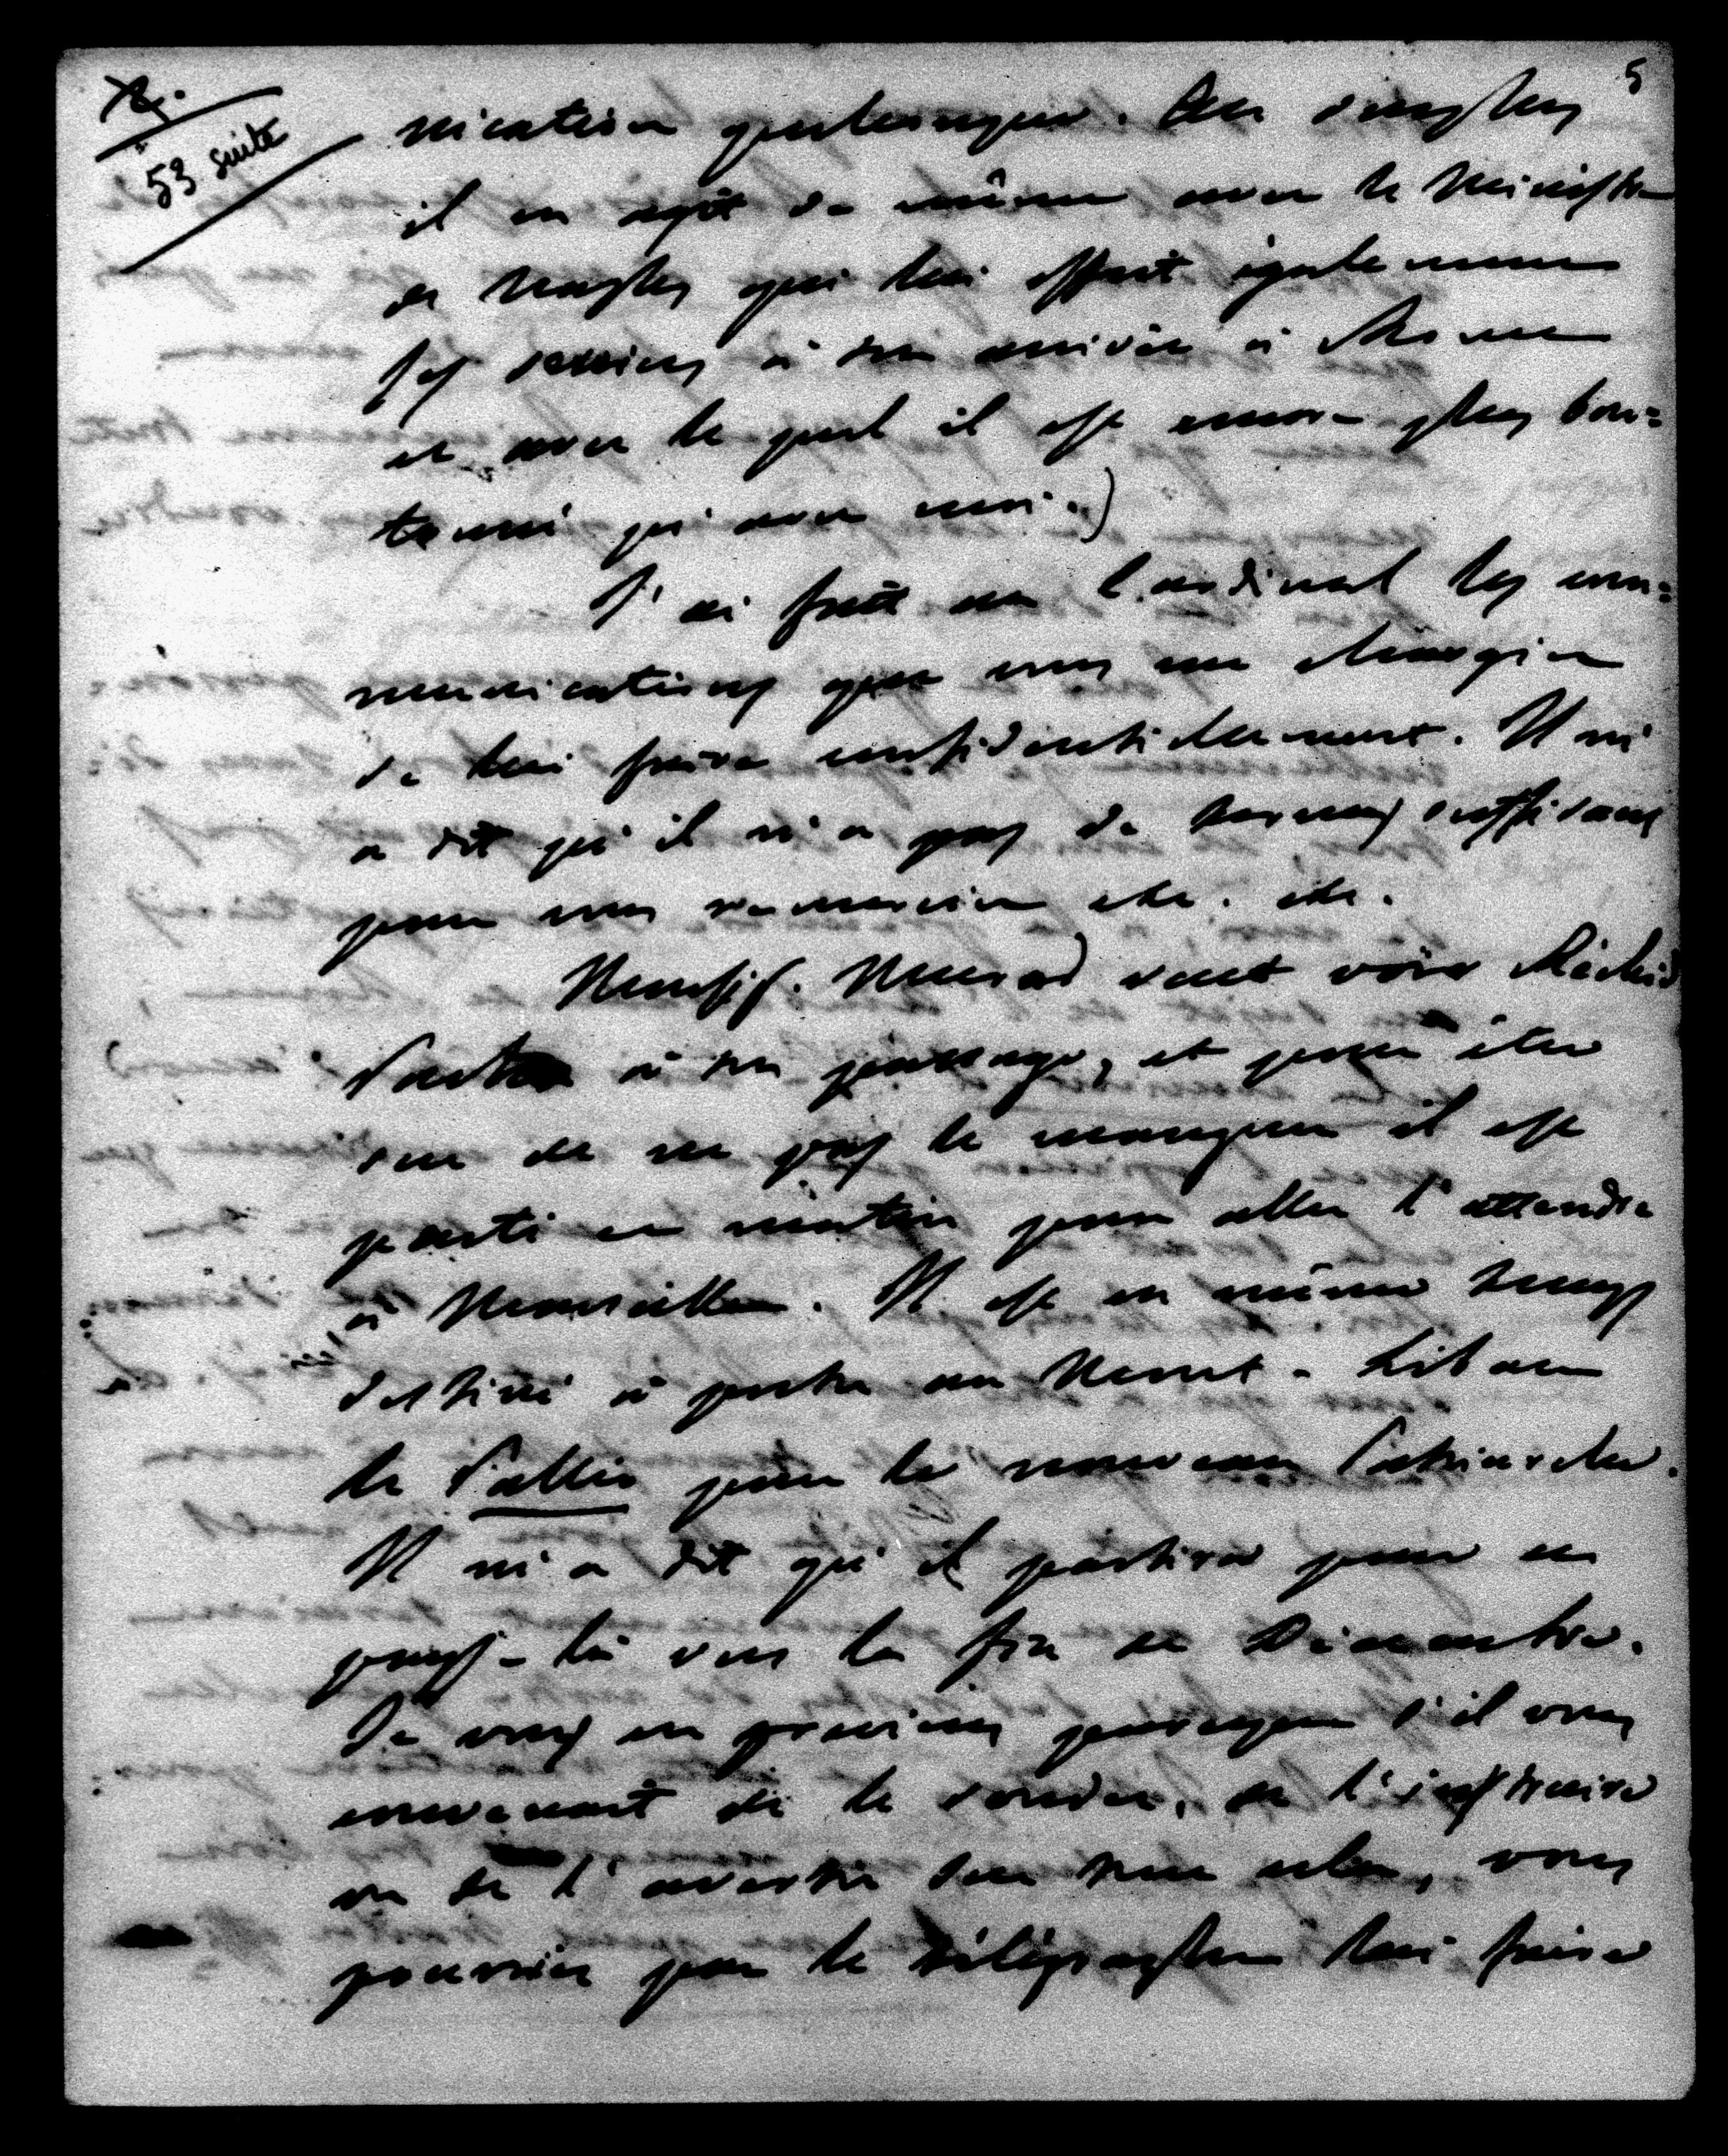 5
53 suite
nication quelconque. Au surplus
il en agit de même avec le Ministre
de Naples qui lui offrit également
ses services à son arrivée à Rome
et avec lequel il est encore plus bou=
tonné qu'avec moi.)
J'ai fait au Cardinal les com=
munications que vous me chargiez
de lui faire confidentiellement. Il m'
a dit qu'il n'a pas de termes suffisans
pour vous remercier etc. etc.
Monsig. Murad veut voir Réchid
Pacha à son passage, et pour être
sur de ne pas le manquer il est
parti ce matin pour aller l'attendre
à Marseille. Il est en même temps
destiné à porter au Mont-Liban
le Pallio pour le nouveau Patriarche.
Il m'a dit qu'il partira pour ce
pays-là vers la fin de Décembre.
Je vous en préviens pourque s'il vous
convenait de le sonder, de l'instruire
ou de l'avertir sur tout cela, vous
pourriez par le télégraphe lui faire